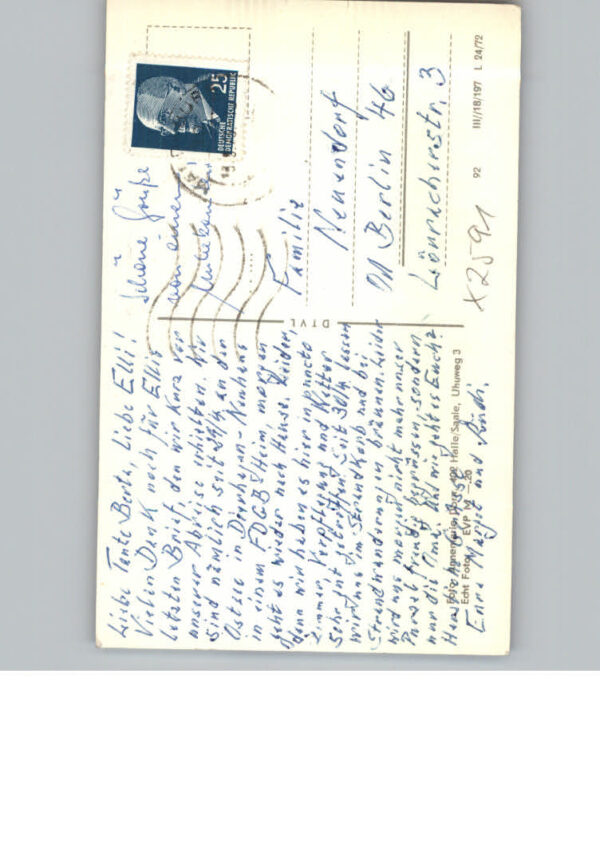 Liebe Tante Berta, Liebe Elli!
Vielen Dank noch für Ellis
letzten Brief, den wir kurz vor
unserer Abreise erhielten. Wir
sind nämlich seit 29/4 an der
Ostsee in Dierhagen-Neuhaus
in einem FDGB Heim, morgen
geht es wieder nach Hause. Leider,
denn wir haben es hier in puncto
Zimmer, Verpflegung und Wetter
sehr gut getroffen. Seit 30/4 lassen
wir uns im Strandkorb und bei
Strandwanderungen bräunen. Leider
wird uns morgen nicht mehr unser
freudig begrüssen, sondern
nur die Omi. Und wie geht es Euch?
Herzliche Grüsse
Eure Margot und Rudi.
Schöne Grüße
von einer
DEUTSCHE
DEMOKRATISCHE REPUBLIK
25
DTVL
Familie
Neuendorf
Berlin 46
Lörracherstr. 3
X2591
Foto: Annemarie 402 Halle/Saale, Uhuweg 3
Echt Foto EVP M —.20
92 III/18/197 L 24/72